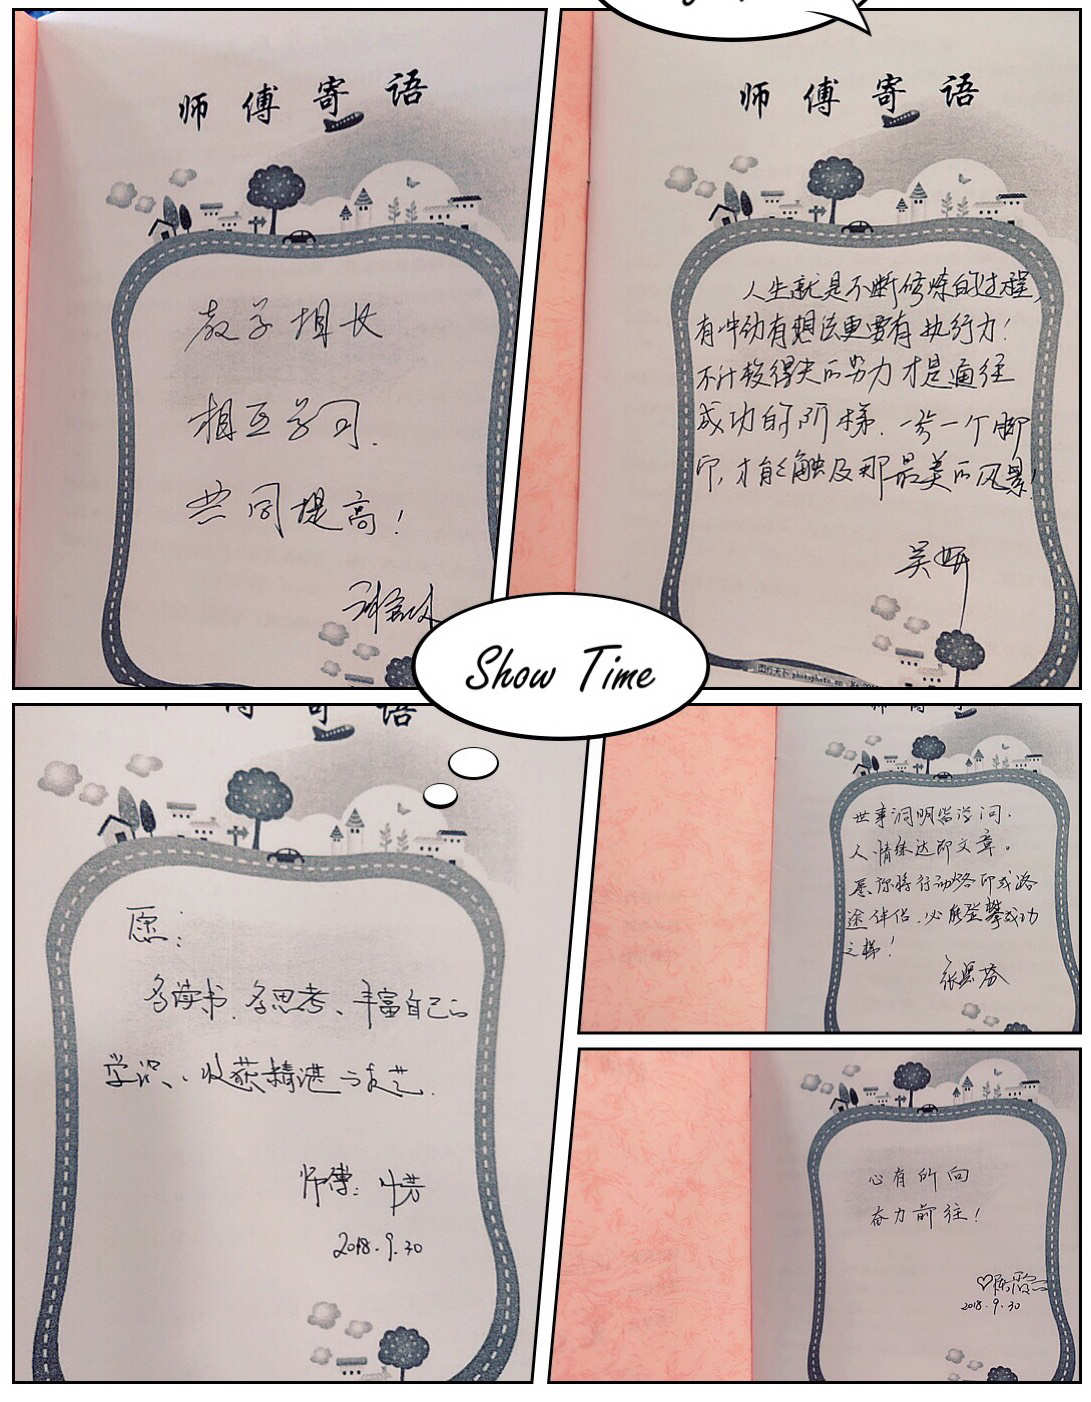 师傅寄语
教学相长
相互学习.
共同提高!
师傅寄语
人生就是不断修炼的过程,
有冲劲有想法更要有执行力!
不计较得失的努力才是通往
成功的阶梯.一步一个脚
印,才能触及那最美的风景!
吴妍
Show Time
师傅寄语
愿:
多读书、多思考、丰富自己的
学识、收获精湛的技艺.
师傅: 叶芳
2018.9.30
师傅寄
世事洞明皆学问.
人情练达即文章。
愿你将行动烙印成路
途伴侣.必能登攀成功
之梯!
心有所向
奋力前往!
2018.9.30